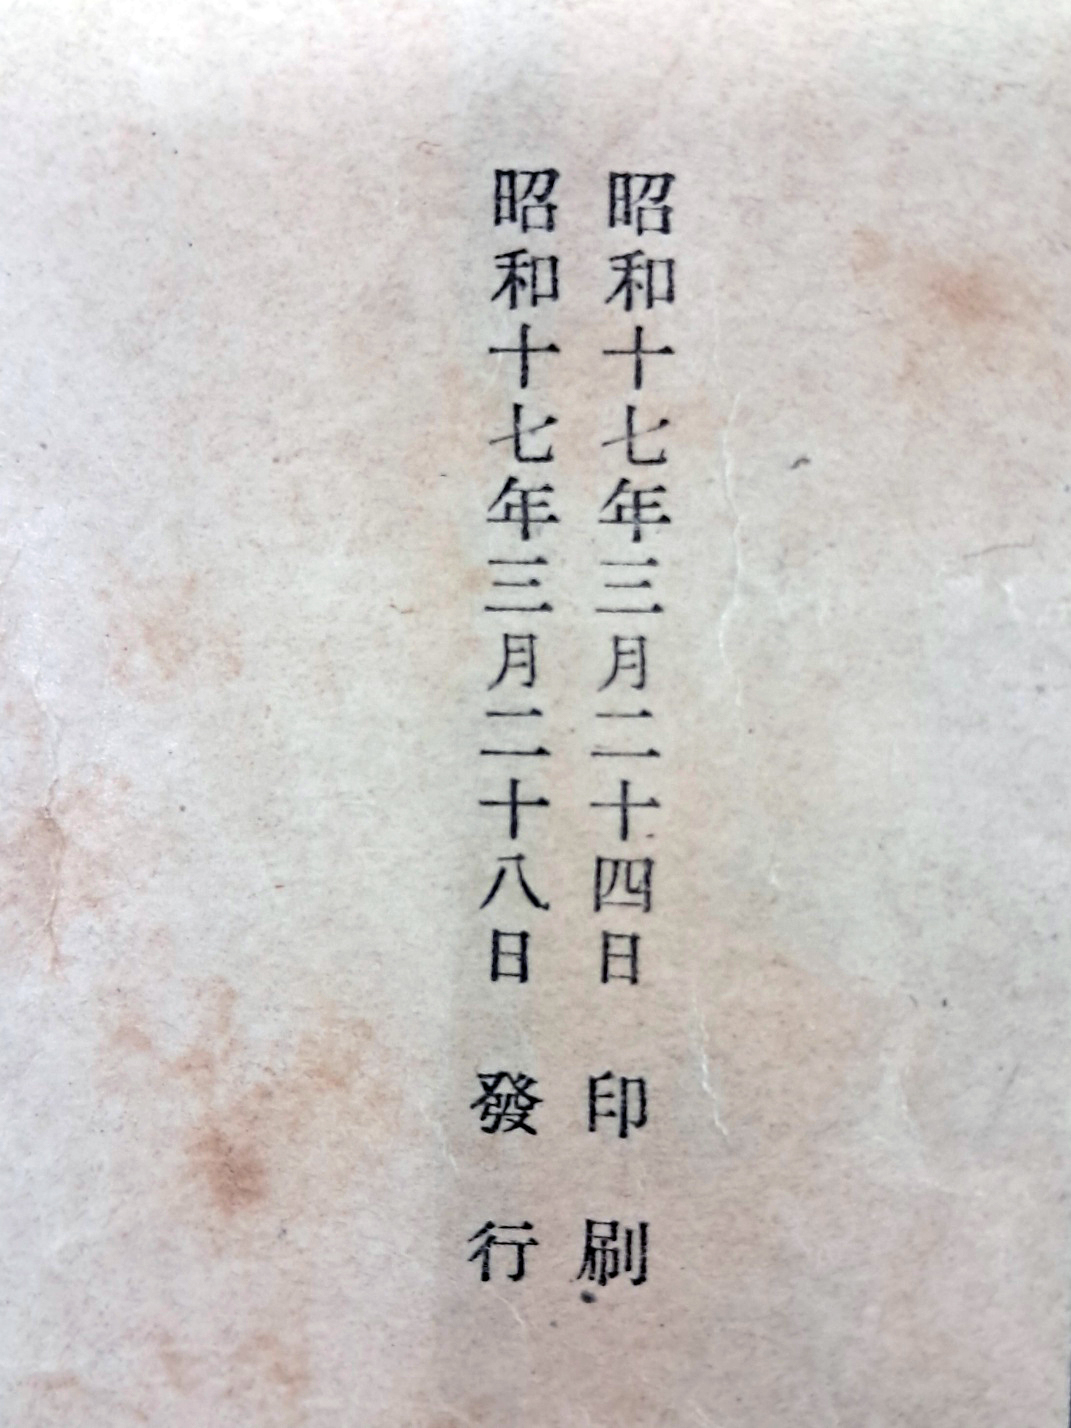 昭和十七年三月二十四日 印刷
昭和十七年三月二十八日 發行